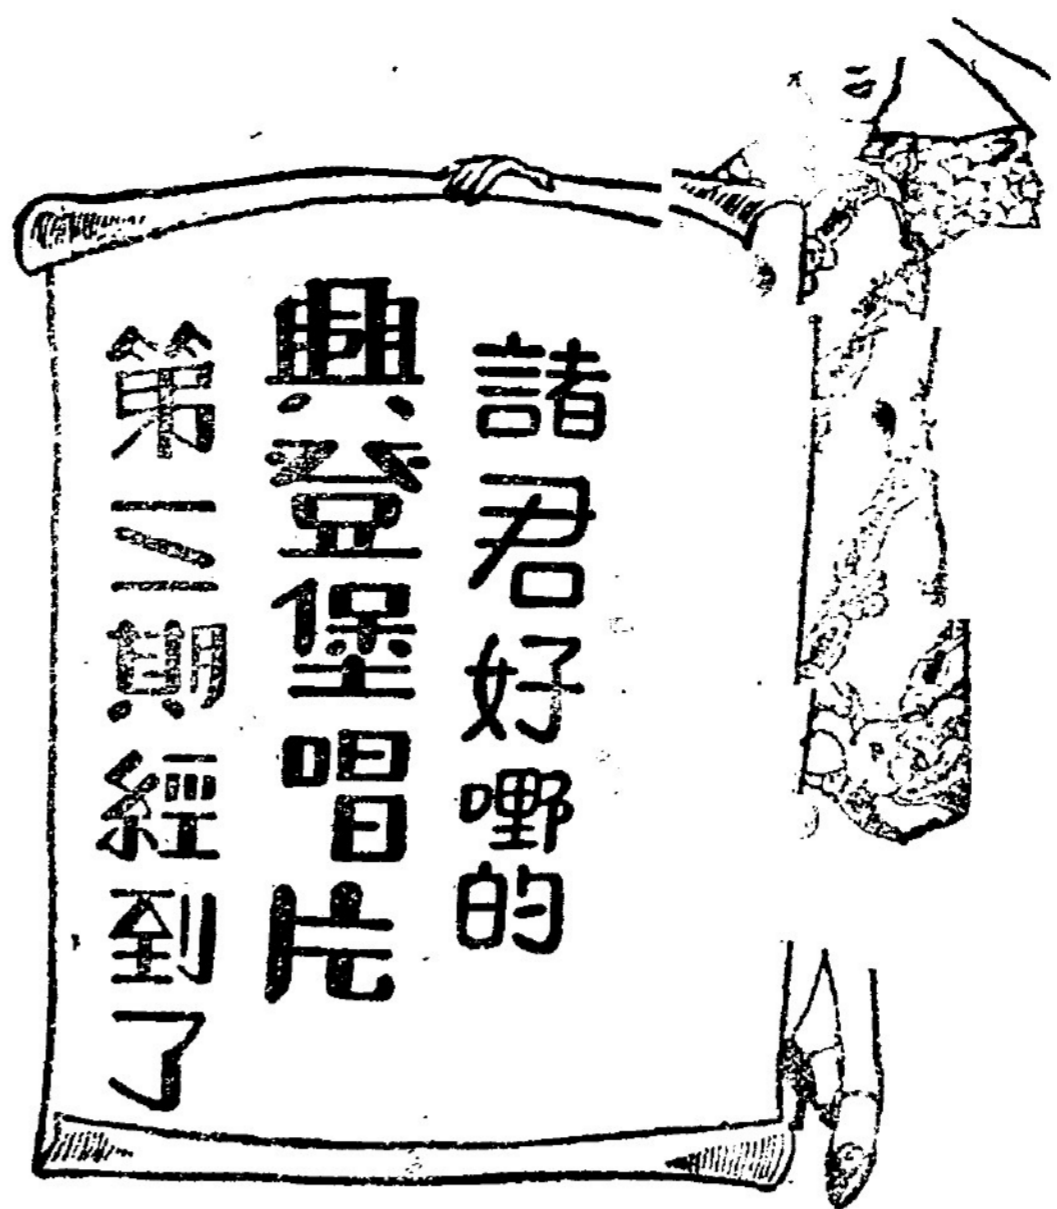 諸君好嘢的
興登堡唱片
第三期經到了